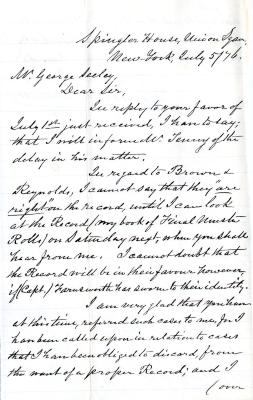 Spingler House, Union Square
New York, July 5/76.
Mr. George Seeley,
Dear Sir,
In reply to your favor of
July 1st just received, I have to say;
that I will inform Mr. Tenny of the
delay in his matter.
In regard to Brown &
Reynolds, I cannot say that they are
"right" on the record, until I can look
at the Record (my book of Final Muster
Rolls) on Saturday next, when you shall
hear from me. I cannot doubt that
the Record will be in their favour however,
if (Capt.) Farnsworth has sworn to their identity.
I am very glad that you have
at this time, referred such cases to me, for I
have been called upon in relation to cases
that I have been obliged to discard, from
the want of a proper Record; and I
(over